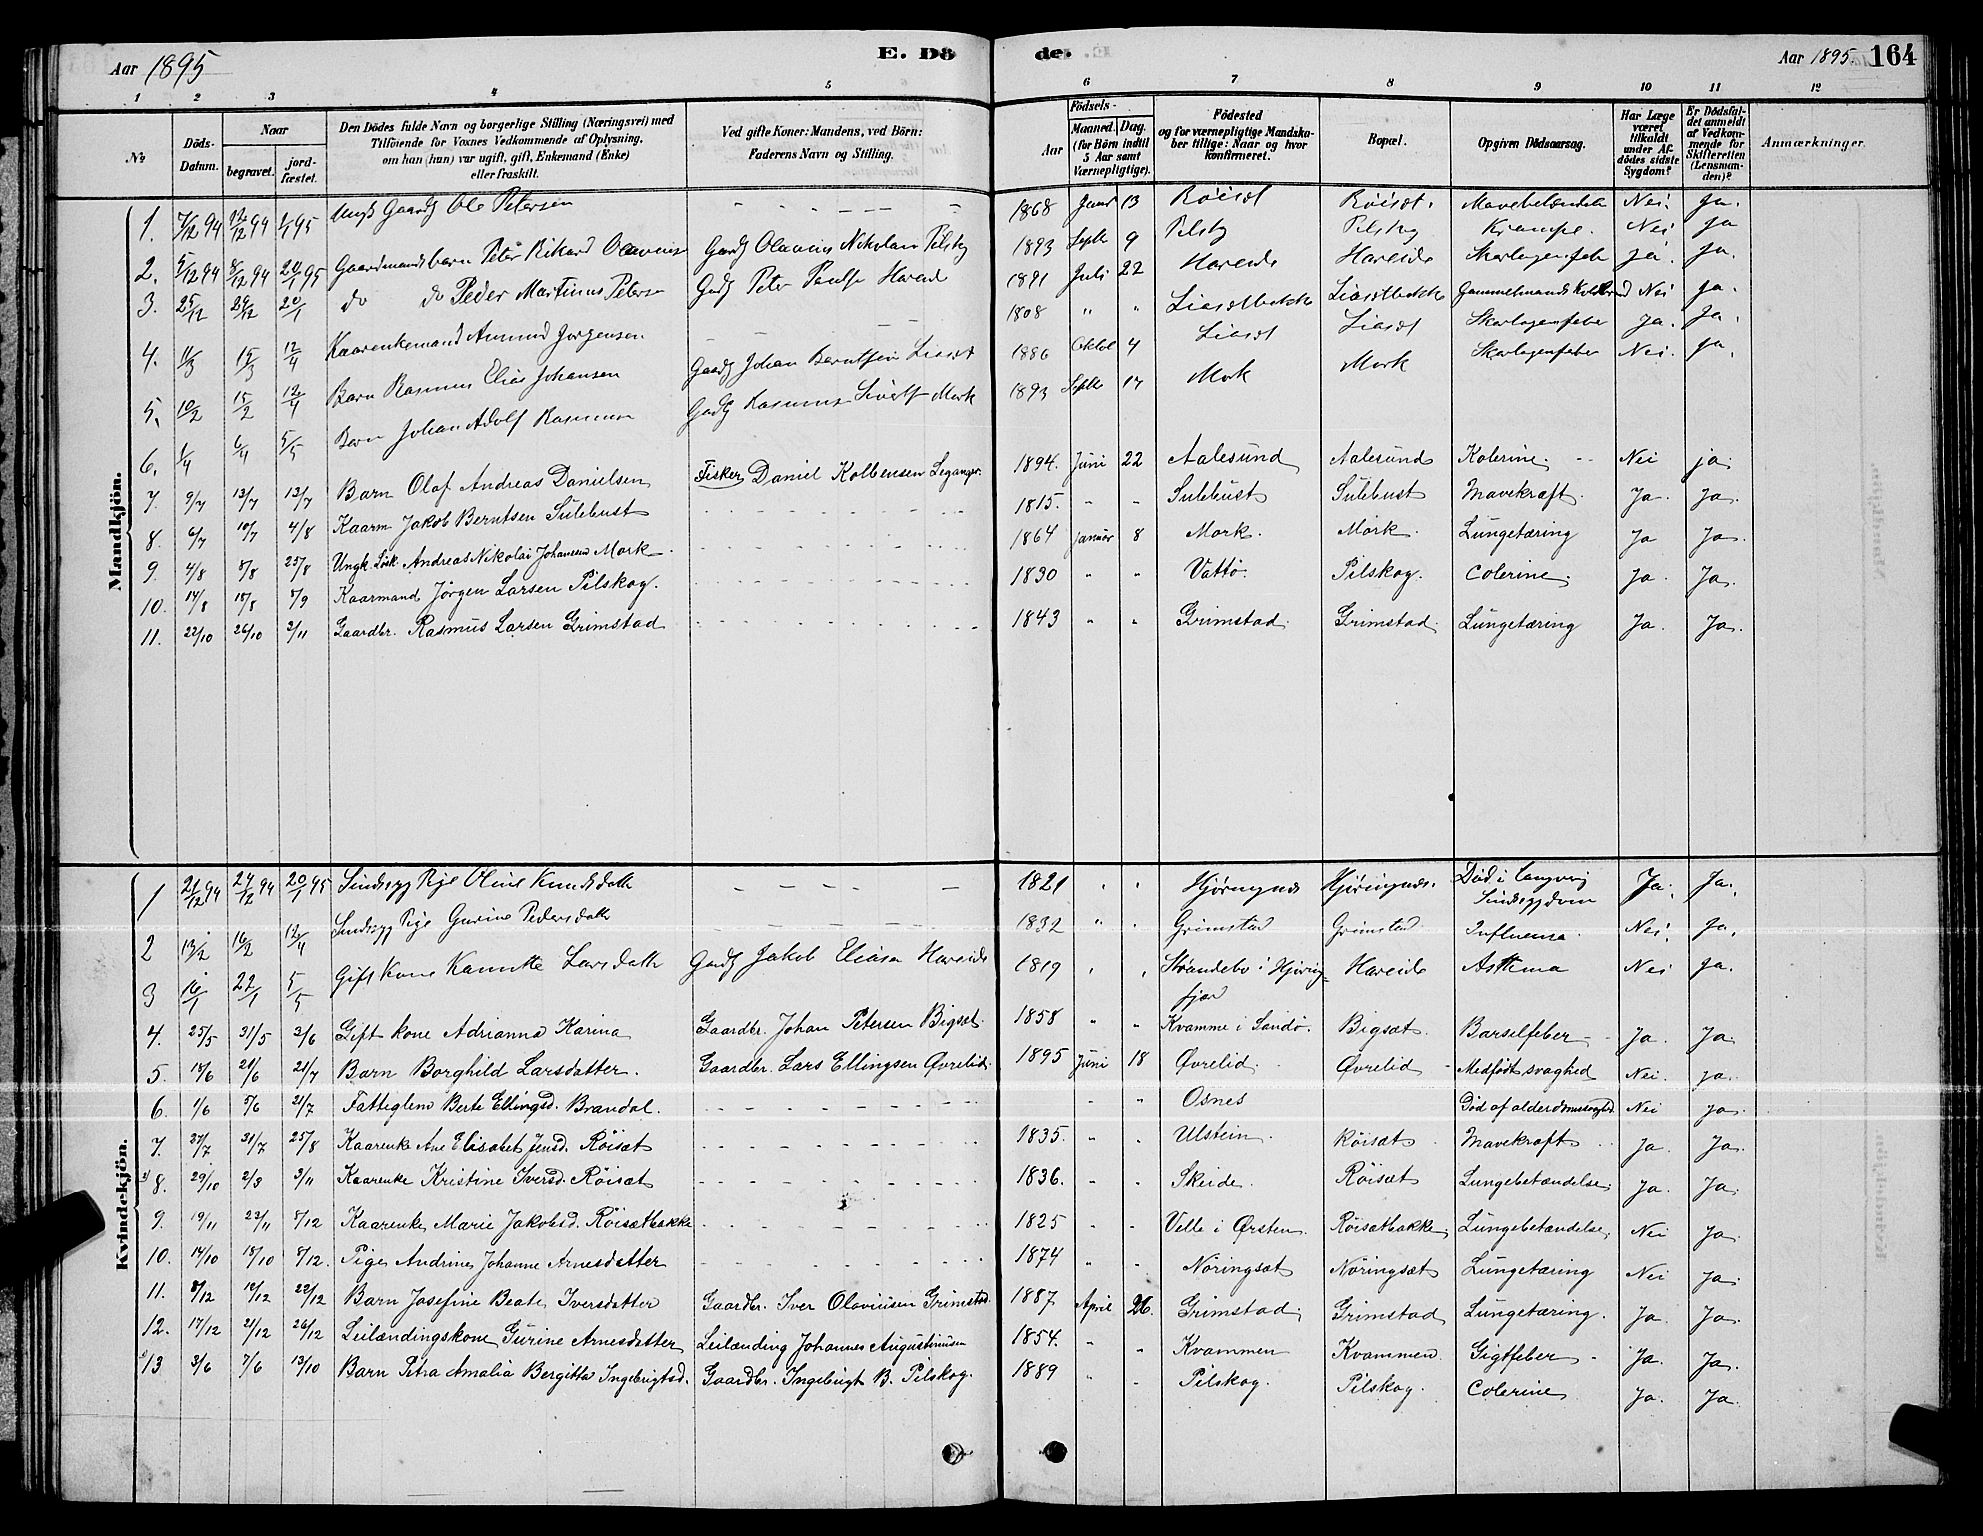 Aar 1895 E. Dö
de. Aar 1895. 164
1 2 3 4 5
6 7 8 9 10 11 12
No
Döds-Datum.
Naar
begravet.
jord-fæstet.
Den Dödes fulde Navn og borgerlige Stilling (Næringsvei) med
Tilföiende for Voxnes Vedkommende af Oplysning,
om han (hun) var ugift, gift, Enkemand (Enke)
eller fraskilt.
Ved gifte Koner: Mandens, ved Börn:
Faderens Navn og Stilling.
Födsels-
Aar
Maaned. Dag.
(for Börn indtil
5 Aar samt
Værnepligtige).
Födested
og for værnepligtige Mandska-
ber tillige: Naar og hvor
konfirmeret.
Bopæl.
Opgiven Dödsaarsag.
Har Læge
været
tilkaldt
under Af-
dödes sidste
Sygdom?
Er Dödsfal-
det anmeldt
af Vedkom-
mende for
Skifteretten
(Lensman-
den)?
Anmærkninger.
Mandkjön.
1. 7/12 94 12/12 94 1/1 95 Ole Petersen 1868 Januar 13 Röisæt Röisæt. Nei. Ja.
2. 5/12 94 8/12 94 20/1 95 Gaardmandsbarn Peter Rikard Olavius Gaardbr Olavius Nikolai Pilskog 1893 Septbr 9 Pilskog Pilskog Krampe. Nei Ja
3. 25/12 29/12 20/1 do do Peder Martinus Petersen Gaardbr Peter Hareid 1891 Juli 22 Hareide Hareide Skarlagensfeber Ja. Ja.
4. 11/3 15/3 12/4 Kaarenkemand Amund Jørgensen 1808 " " Liasætbakke Liasætbakke Nei Ja.
5. 10/2 15/2 12/4 Barn Rasmus Elias Johansen Gaardbr Johan Berntsen Liasæt 1886 Oktob 4 Liasæt Liasæt Skarlagensfeber Ja. Ja.
6. 1/4 6/4 5/5 Barn Johan Adolf Rasmussen Gaardbr Rasmus Mork 1893 Septbr 17 Mork Mork Skarlagensfeber Nei. Ja.
7. 9/7 13/7 13/7 Barn Olaf Andreas Danielsen Fisker Daniel Kolbensen Leganger. 1894. Juni 22 Aalesund Aalesund Kolerine. Nei ja.
8. 6/7 10/7 4/8 Kaarm Jakob Berntsen Sulebust 1815. - - Sulebust Sulebust Mavekræft. Ja. Ja.
9. 4/8 8/8 25/8 Ungk. Andreas Nikolai Johansen Mork. 1864 januar 8 Mork. Mork. Lungetæring Ja Ja.
10. 14/8 18/8 8/9 Kaarmand Jørgen Larsen Pilskog. 1830 " " Vattö. Pilskog. Colerine. Ja. Ja.
11. 22/10 26/10 3/11 Gaardbr. Rasmus Larsen Grimstad 1843 " " Grimstad. Grimstad. Lungetæring Ja. Ja.
Kvindekjön.
1 21/12 94 24/12 94 20/1 95 Sindssyg Pige Oline Knudsdatter 1821 " " Hjørungnes Hjørungnes. Død i langvarig Sindssygdom Ja. Ja.
2 13/2 16/2 12/4 Sindssyg Pige Gurine Pedersdatter 1832 " " Grimstad Grimstad Influensa. Nei. Ja.
3 16/1 27/1 5/5 Gift Kone Larsdatter Gaardbr Jakob Eliasen Hareide 1819 " " Hareide Asthma Nei Ja.
4. 25/5 31/5 3/6 Gift kone Adrianna Karina Gaardbr. Johan Petersen Bigsæt. 1858 " " Kvamme i Sandö. Bigsæt. Barselfeber Ja. Ja
5. 18/6 21/6 21/7 Barn Borghild Larsdatter. Gaardbr. Lars Ellingsen Øvrelid. 1895 Juni 18 Øvrelid. Øvrelid Medfödt svaghed Nei. ja.
6. 1/6 5/6 21/7 Fattiglem Berte Ellingsd. Brandal. - " Osnes Död af alderdomssvaghed Nei ja.
7. 27/7 31/7 25/8 Kaarenke Ane Elisabet Jensd. Röisæt 1835. " " Ulstein. Röisæt Mavekræft Ja. Ja.
8. 29/10 2/3 3/11 Kaarenke Kristine Iversd. Röisæt 1836. " " Skeide. Röisæt Lungebetændelse. Ja. Ja.
9. 19/11 23/11 8/12 Kaarenke Marie Jakobsd. Röisætbakke 1825 " " Velle i Ørsten. Röisætbakke Lungebetændelse. Nei Ja.
10. 14/10 18/10 8/12. Pige Andrine Johanne Arnesdatter 1874 " " Nöringsæt Nöringsæt Lungetæring Nei Ja.
11. 8/12 12/12 22/12 Barn Josefine Beate Iversdatter Gaardbr. Iver Olaviusen Grimstad. 1887 April 26. Grimstad. Grimstad Lungetæring. Ja. Ja.
12. 17/12 21/12 26/12 Leilændingskone Gurine Arnesdatter Leilænding Johannes Augustinusen 1854. " " Kvammen Kvammen Gigtfeber Ja. Ja.
13 3/6 7/6 13/10 Barn Petra Amalia Bergitta Ingebrigtsd. Gaardbr. Ingebrigt B. Pilskog. 1889 " - Pilskog. Pilskog. Colerine Ja. Ja.